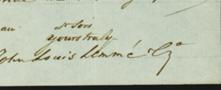 Sirs
yours truly
John Louis Lemmé & Co